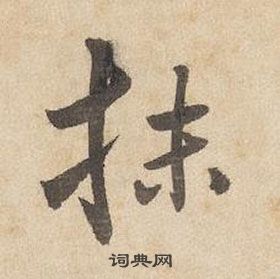 抹
词典网